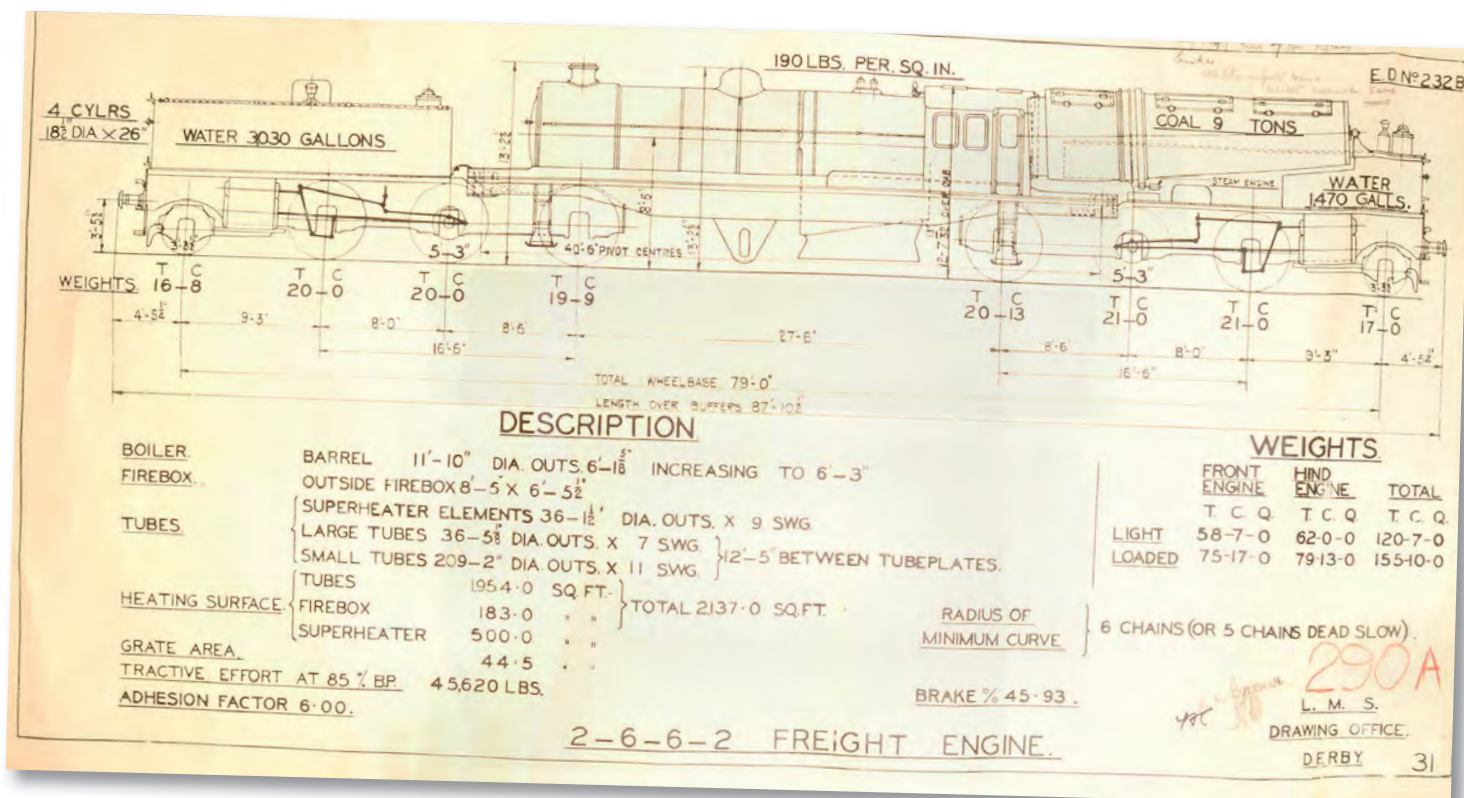 E.D.Nº232B
190 LBS. PER. SQ. IN.
4 CYLRS
18½" DIA × 26"
WATER 3030 GALLONS
COAL 9 TONS
STEAM ENGINE
WATER
1,470 GALLS.
13'-2⅝"
8'-6"
12'-7 OVER CAB
3'-5¾"
3'-3½"
3'-3½"
5'-3"
40'-6" PIVOT CENTRES
5'-3"
WEIGHTS.
T C T C T C T C T C T C T C T C
16-8 20-0 20-0 19-9 20-13 21-0 21-0 17-0
4'-5½" 9'-3" 8'-0" 8'-6" 27'-6" 8'-6 8'-0" 9'-3" 4'-5½"
16'-6" 16'-6"
TOTAL WHEELBASE 79'-0"
LENGTH OVER BUFFERS 87'-10½"
DESCRIPTION
BOILER. BARREL 11'-10" DIA. OUTS. 6'-1⅝" INCREASING TO 6'-3"
FIREBOX. OUTSIDE FIREBOX 8'-5" × 6'-5½"
TUBES. SUPERHEATER ELEMENTS 36-1½" DIA. OUTS. × 9 SWG
LARGE TUBES 36-5⅛" DIA. OUTS. × 7 SWG.
SMALL TUBES 209-2" DIA. OUTS. × 11 SWG.
12'-5" BETWEEN TUBEPLATES.
HEATING SURFACE. TUBES 1954·0 SQ. FT.
FIREBOX 183·0 " "
SUPERHEATER 500·0 " "
TOTAL 2,137·0 SQ.FT.
GRATE AREA. 44·5 " "
TRACTIVE EFFORT AT 85 % BP. 45,620 LBS.
ADHESION FACTOR 6·00.
WEIGHTS.
FRONT ENGINE HIND ENGINE TOTAL
T. C. Q. T. C. Q. T. C. Q.
LIGHT 58-7-0 62-0-0 120-7-0
LOADED 75-17-0 79-13-0 155-10-0
RADIUS OF
MINIMUM CURVE
6 CHAINS (OR 5 CHAINS DEAD SLOW).
BRAKE % 45·93.
290A
L. M. S.
DRAWING OFFICE.
DERBY 31
2-6-6-2 FREIGHT ENGINE.